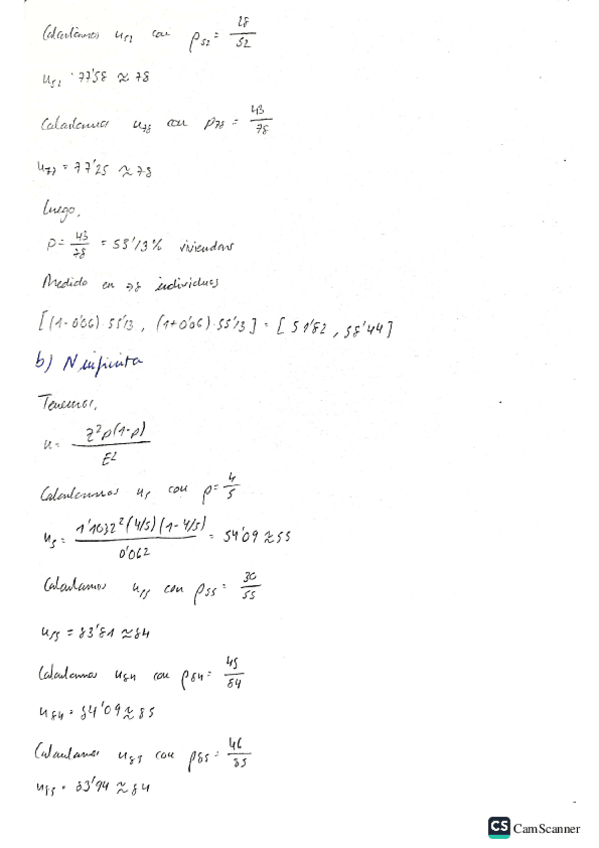 Calculamos n52 con p52 = 28/52
n52 = 77'58 ≈ 78
Calculamos n78 con p78 = 43/78
n77 = 77'25 ≈ 78
Luego,
p = 43/78 = 55'13% viviendas
Medido en 78 individuos
[(1-0'06)·55'13, (1+0'06)·55'13] = [51'82, 58'44]
b) N infinita
Tenemos,
n = Z²p(1-p)/E²
Calculamos n5 con p = 4/5
n5 = 1'1032²(4/5)(1-4/5)/0'062 = 54'09 ≈ 55
Calculamos n55 con p55 = 30/55
n55 = 83'81 ≈ 84
Calculamos n84 con p84 = 45/84
n84 = 84'09 ≈ 85
Calculamos n85 con p85 = 46/85
n85 = 83'94 ≈ 84
CS CamScanner